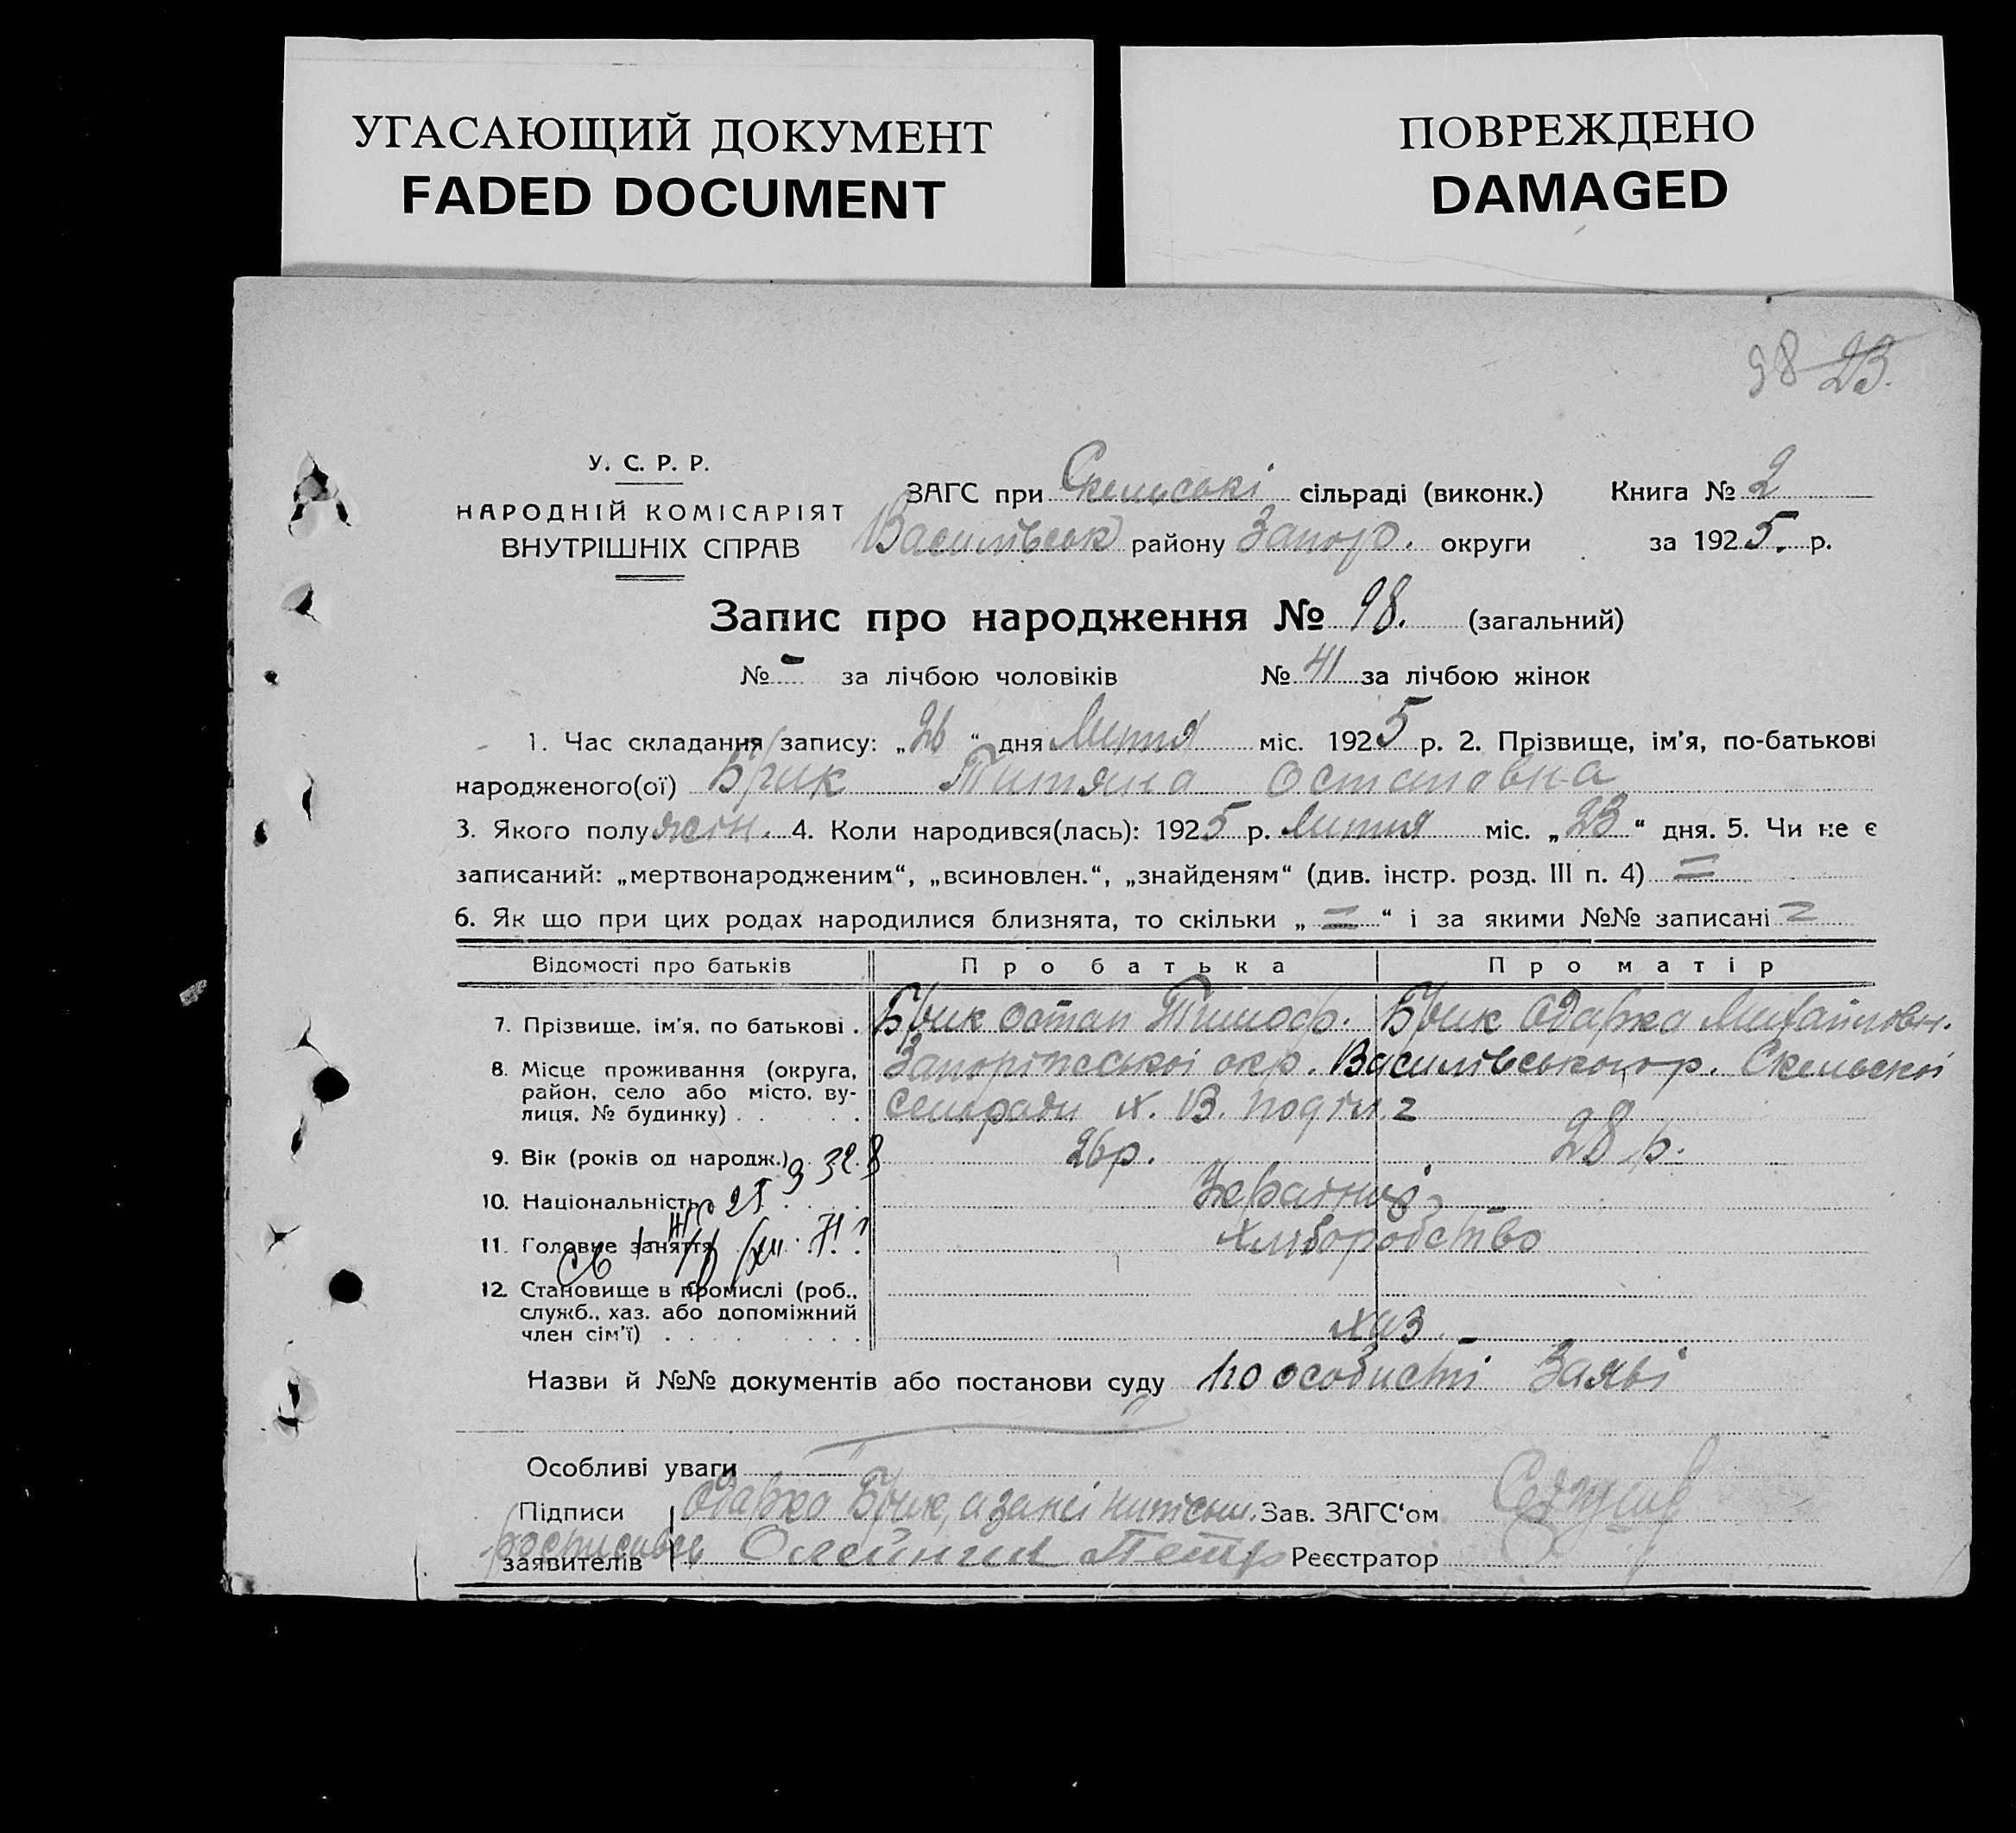 УГАСАЮЩИЙ ДОКУМЕНТ
FADED DOCUMENT
ПОВРЕЖДЕНО
DAMAGED
98 23.
У. С. Р. Р.
НАРОДНІЙ КОМІСАРІЯТ
ВНУТРІШНІХ СПРАВ
ЗАГС при Скельські сільраді (виконк.) Книга № 2
Василівськ району Запор. округи за 1925. р.
Запис про народження № 98. (загальний)
№ - за лічбою чоловіків № 41 за лічбою жінок
1. Час складання запису: „26“ дня Лютня міс. 1925 р. 2. Прізвище, ім'я, по-батькові
народженого(ої) Брик Титяна Остаповна
3. Якого полу жін. 4. Коли народився(лась): 1925 р. Лютня міс. „23“ дня. 5. Чи не є
записаний: „мертвонародженим“, „всиновлен.“, „знайденям“ (див. інстр. розд. III п. 4) =
6. Як що при цих родах народилися близнята, то скільки „=“ і за якими №№ записані =
Відомості про батьків Про батька Про матір
7. Прізвище, ім'я, по батькові . Брик Остап Тимоф. Брик Одарка Михайловн.
8. Місце проживання (округа, район, село або місто, вулиця, № будинку) Запоріжської окр. Василівського р. Скельскоі
сельради х. В.
9. Вік (років од народж.) 26 р. 28 р.
10. Національність Українці
11. Головне заняття хліборобство
12. Становище в промислі (роб., служб., хаз. або допоміжний член сім'ї) хаз.
Назви й №№ документів або постанови суду по особисті Заяві
Особливі уваги
Підписи Одарка Брик, а за неі Зав. ЗАГС'ом
заявителів росписався Олейник Петр Реєстратор